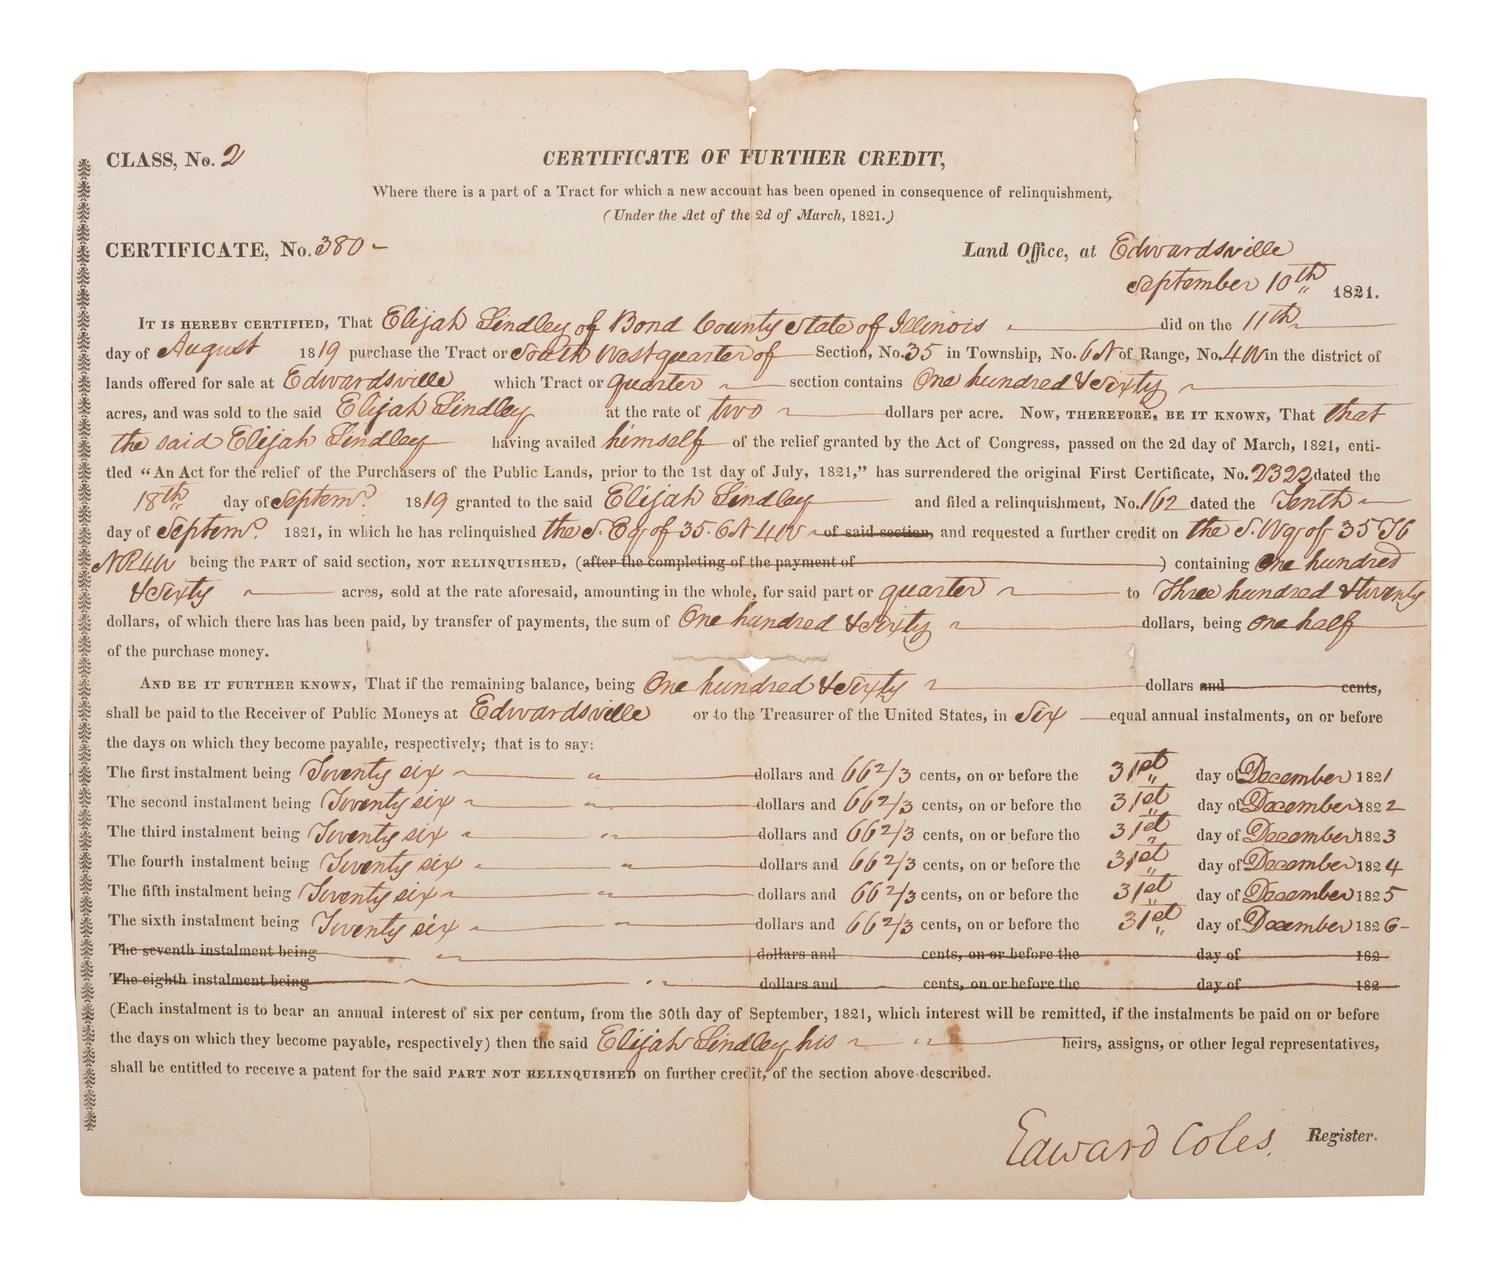 CLASS, No. 2
CERTIFICATE OF FURTHER CREDIT,
Where there is a part of a Tract for which a new account has been opened in consequence of relinquishment,
(Under the Act of the 2d of March, 1821.)
CERTIFICATE, No. 380 -
Land Office, at Edwardsville
September 10th 1821.
IT IS HEREBY CERTIFIED, That Elijah Lindley of Bond County State of Illinois did on the 11th
day of August 1819 purchase the Tract or South West quarter of Section, No. 35 in Township, No. 6N of Range, No. 4W in the district of
lands offered for sale at Edwardsville which Tract or quarter section contains One hundred & Sixty
acres, and was sold to the said Elijah Lindley at the rate of two dollars per acre. NOW, THEREFORE, BE IT KNOWN, That that
the said Elijah Lindley having availed himself of the relief granted by the Act of Congress, passed on the 2d day of March, 1821, enti-
tled "An Act for the relief of the Purchasers of the Public Lands, prior to the 1st day of July, 1821," has surrendered the original First Certificate, No. 2322 dated the
18th day of Septemr. 1819 granted to the said Elijah Lindley and filed a relinquishment, No. 162 dated the Tenth
day of Septemr. 1821, in which he has relinquished the S. Eq of 35. 6N 4W of said section, and requested a further credit on the S. Wq of 35 T6
N R4W being the PART of said section, NOT RELINQUISHED, (after the completing of the payment of ) containing One hundred
& Sixty acres, sold at the rate aforesaid, amounting in the whole, for said part or quarter to Three hundred & twenty
dollars, of which there has has been paid, by transfer of payments, the sum of One hundred & Sixty dollars, being one half
of the purchase money.
AND BE IT FURTHER KNOWN, That if the remaining balance, being One hundred & Sixty dollars and cents,
shall be paid to the Receiver of Public Moneys at Edwardsville or to the Treasurer of the United States, in Six equal annual instalments, on or before
the days on which they become payable, respectively; that is to say:
The first instalment being Twenty six dollars and 66 2/3 cents, on or before the 31st day of December 1821
The second instalment being Twenty six dollars and 66 2/3 cents, on or before the 31st day of December 1822
The third instalment being Twenty six dollars and 66 2/3 cents, on or before the 31st day of December 1823
The fourth instalment being Twenty six dollars and 66 2/3 cents, on or before the 31st day of December 1824
The fifth instalment being Twenty six dollars and 66 2/3 cents, on or before the 31st day of December 1825
The sixth instalment being Twenty six dollars and 66 2/3 cents, on or before the 31st day of December 1826-
The seventh instalment being dollars and cents, on or before the day of 182
The eighth instalment being dollars and cents, on or before the day of 182
(Each instalment is to bear an annual interest of six per centum, from the 30th day of September, 1821, which interest will be remitted, if the instalments be paid on or before
the days on which they become payable, respectively) then the said Elijah Lindley his heirs, assigns, or other legal representatives,
shall be entitled to receive a patent for the said PART NOT RELINQUISHED on further credit, of the section above described.
Edward Coles. Register.